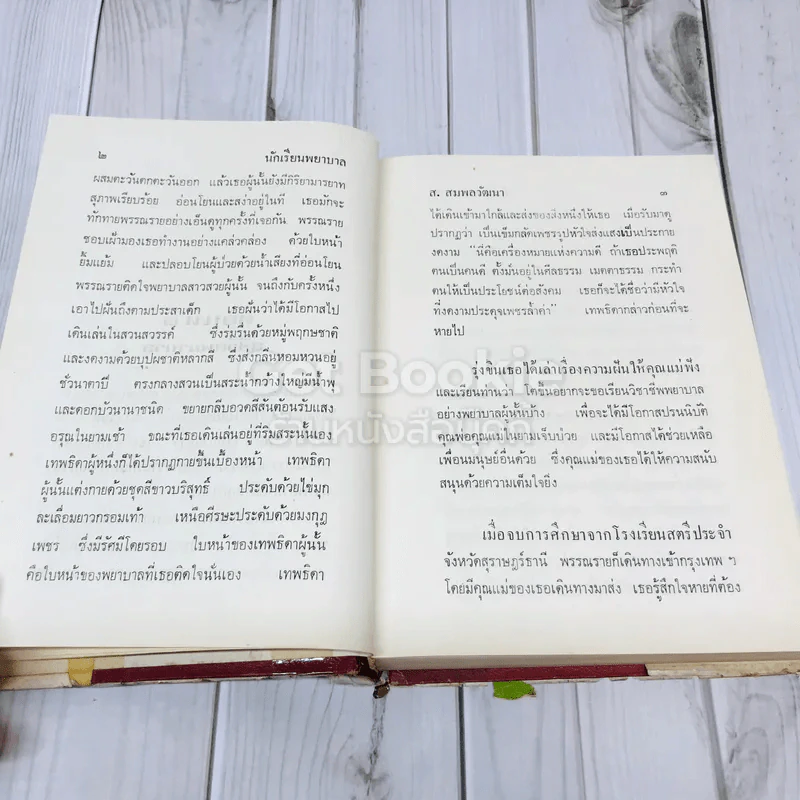 ๒ นักเรียนพยาบาล
ผสมตะวันตกตะวันออก แล้วเธอผู้นั้นยังมีกิริยามารยาท
สุภาพเรียบร้อย อ่อนโยนและสง่าอยู่ในที เธอมักจะ
ทักทายพรรณรายอย่างเอ็นดูทุกครั้งที่เจอกัน พรรณราย
ชอบเฝ้ามองเธอทำงานอย่างแคล่วคล่อง ด้วยใบหน้า
ยิ้มแย้ม และปลอบโยนผู้ป่วยด้วยน้ำเสียงที่อ่อนโยน
พรรณรายติดใจพยาบาลสาวสวยผู้นั้น จนถึงกับครั้งหนึ่ง
เอาไปฝันถึงตามประสาเด็ก เธอฝันว่าได้มีโอกาสไป
เดินเล่นในสวนสวรรค์ ซึ่งร่มรื่นด้วยหมู่พฤกษชาติ
และงดงามด้วยบุปผชาติหลากสี ซึ่งส่งกลิ่นหอมหวนอยู่
ชั่วนาตาปี ตรงกลางสวนเป็นสระน้ำกว้างใหญ่มีน้ำพุ
และดอกบัวนานาชนิด ขยายกลีบอวดสีสันต้อนรับแสง
อรุณในยามเช้า ขณะที่เธอเดินเล่นอยู่ที่ริมสระนั้นเอง
เทพธิดาผู้หนึ่งก็ได้ปรากฏกายขึ้นเบื้องหน้า เทพธิดา
ผู้นั้นแต่งกายด้วยชุดสีขาวบริสุทธิ์ ประดับด้วยไข่มุก
ละเลื่อมยาวกรอมเท้า เหนือศีรษะประดับด้วยมงกุฎ
เพชร ซึ่งมีรัศมีโดยรอบ ใบหน้าของเทพธิดาผู้นั้น
คือใบหน้าของพยาบาลที่เธอติดใจนั่นเอง เทพธิดา
ส. สมพลวัฒนา ๓
ได้เดินเข้ามาใกล้และส่งของสิ่งหนึ่งให้เธอ เมื่อรับมาดู
ปรากฏว่า เป็นเข็มกลัดเพชรรูปหัวใจส่งแสงเป็นประกาย
งดงาม "นี่คือเครื่องหมายแห่งความดี ถ้าเธอประพฤติ
ตนเป็นคนดี ตั้งมั่นอยู่ในศีลธรรม เมตตาธรรม กระทำ
ตนให้เป็นประโยชน์ต่อสังคม เธอก็จะได้ชื่อว่ามีหัวใจ
ที่งดงามประดุจเพชรล้ำค่า" เทพธิดากล่าวก่อนที่จะ
หายไป
รุ่งขึ้นเธอได้เล่าเรื่องความฝันให้คุณแม่ฟัง
และเรียนท่านว่า โตขึ้นอยากจะขอเรียนวิชาชีพพยาบาล
อย่างพยาบาลผู้นั้นบ้าง เพื่อจะได้มีโอกาสปรนนิบัติ
คุณพ่อคุณแม่ในยามเจ็บป่วย และมีโอกาสได้ช่วยเหลือ
เพื่อนมนุษย์อื่นด้วย ซึ่งคุณแม่ของเธอได้ให้ความสนับ
สนุนด้วยความเต็มใจยิ่ง
เมื่อจบการศึกษาจากโรงเรียนสตรีประจำ
จังหวัดสุราษฎร์ธานี พรรณรายก็เดินทางเข้ากรุงเทพ ฯ
โดยมีคุณแม่ของเธอเดินทางมาส่ง เธอรู้สึกใจหายที่ต้อง
Get Bookie
ร้านหนังสือเก่า